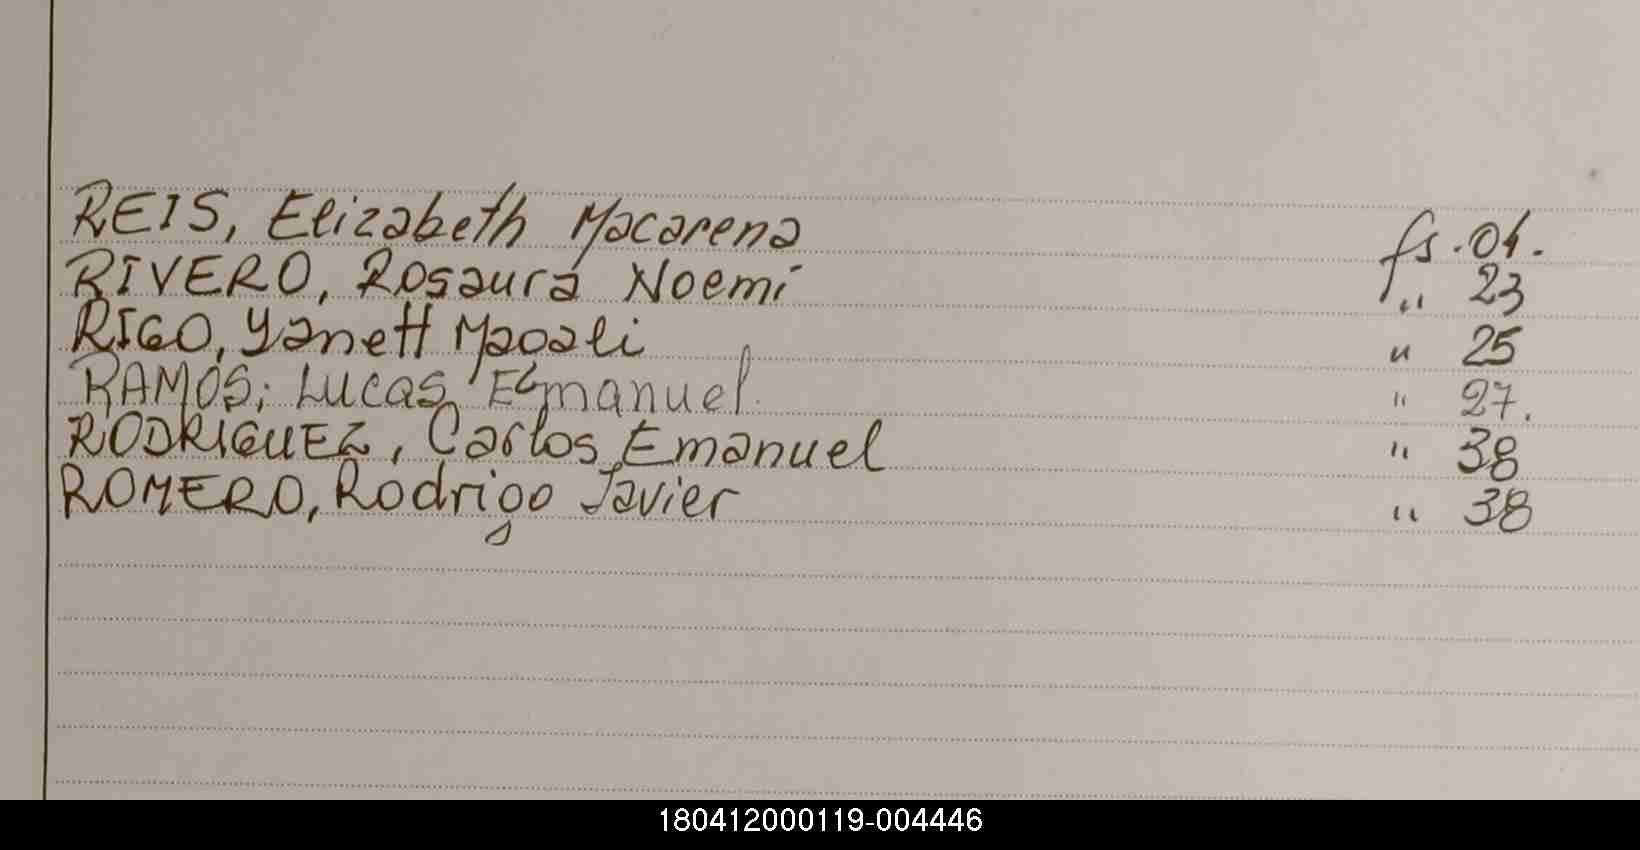 REIS, Elizabeth Macarena fs. 04.
RIVERO, Rosaura Noemí " 23
RIGO, Yanett Magali " 25
RAMOS; Lucas Emanuel. " 27.
RODRIGUEZ, Carlos Emanuel " 38
ROMERO, Rodrigo Javier " 38
180412000119-004446